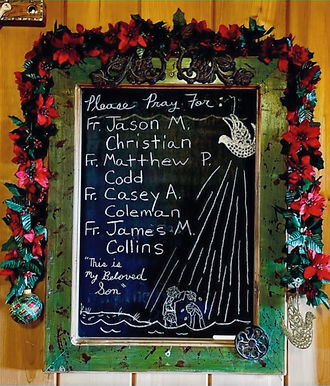 Please Pray For:
Fr. Jason M.
Christian
Fr. Matthew P.
Codd
Fr. Casey A.
Coleman
Fr. James M.
Collins
"This is
My Beloved
Son"